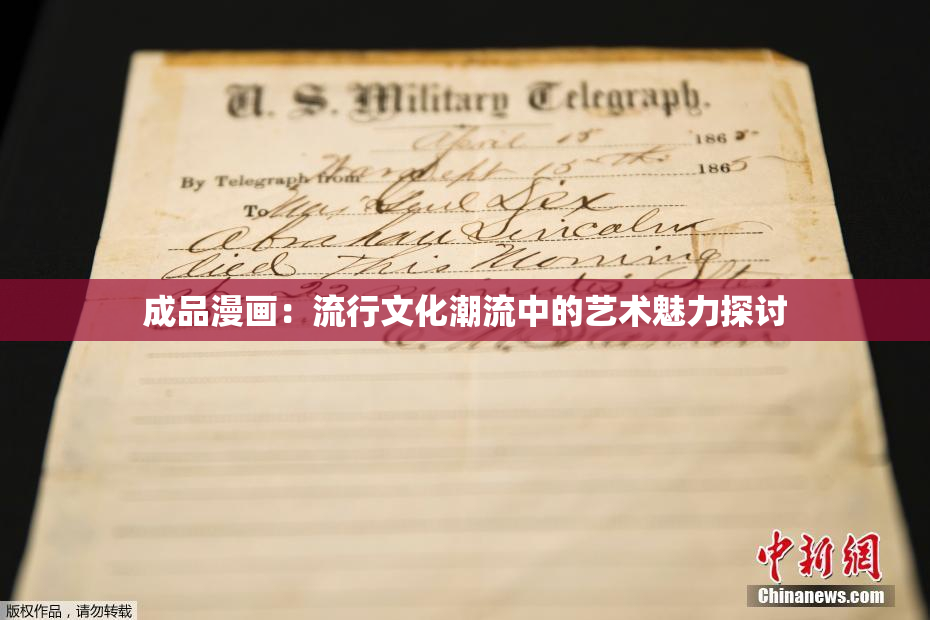 U. S. Military Telegraph.
April 15 1865
By Telegraph from War Dept 15th 1865
To Maj Genl Dix
Abraham Lincoln
died This Morning
at 22 minutes after
成品漫画：流行文化潮流中的艺术魅力探讨
中新网
Chinanews.com
版权作品，请勿转载